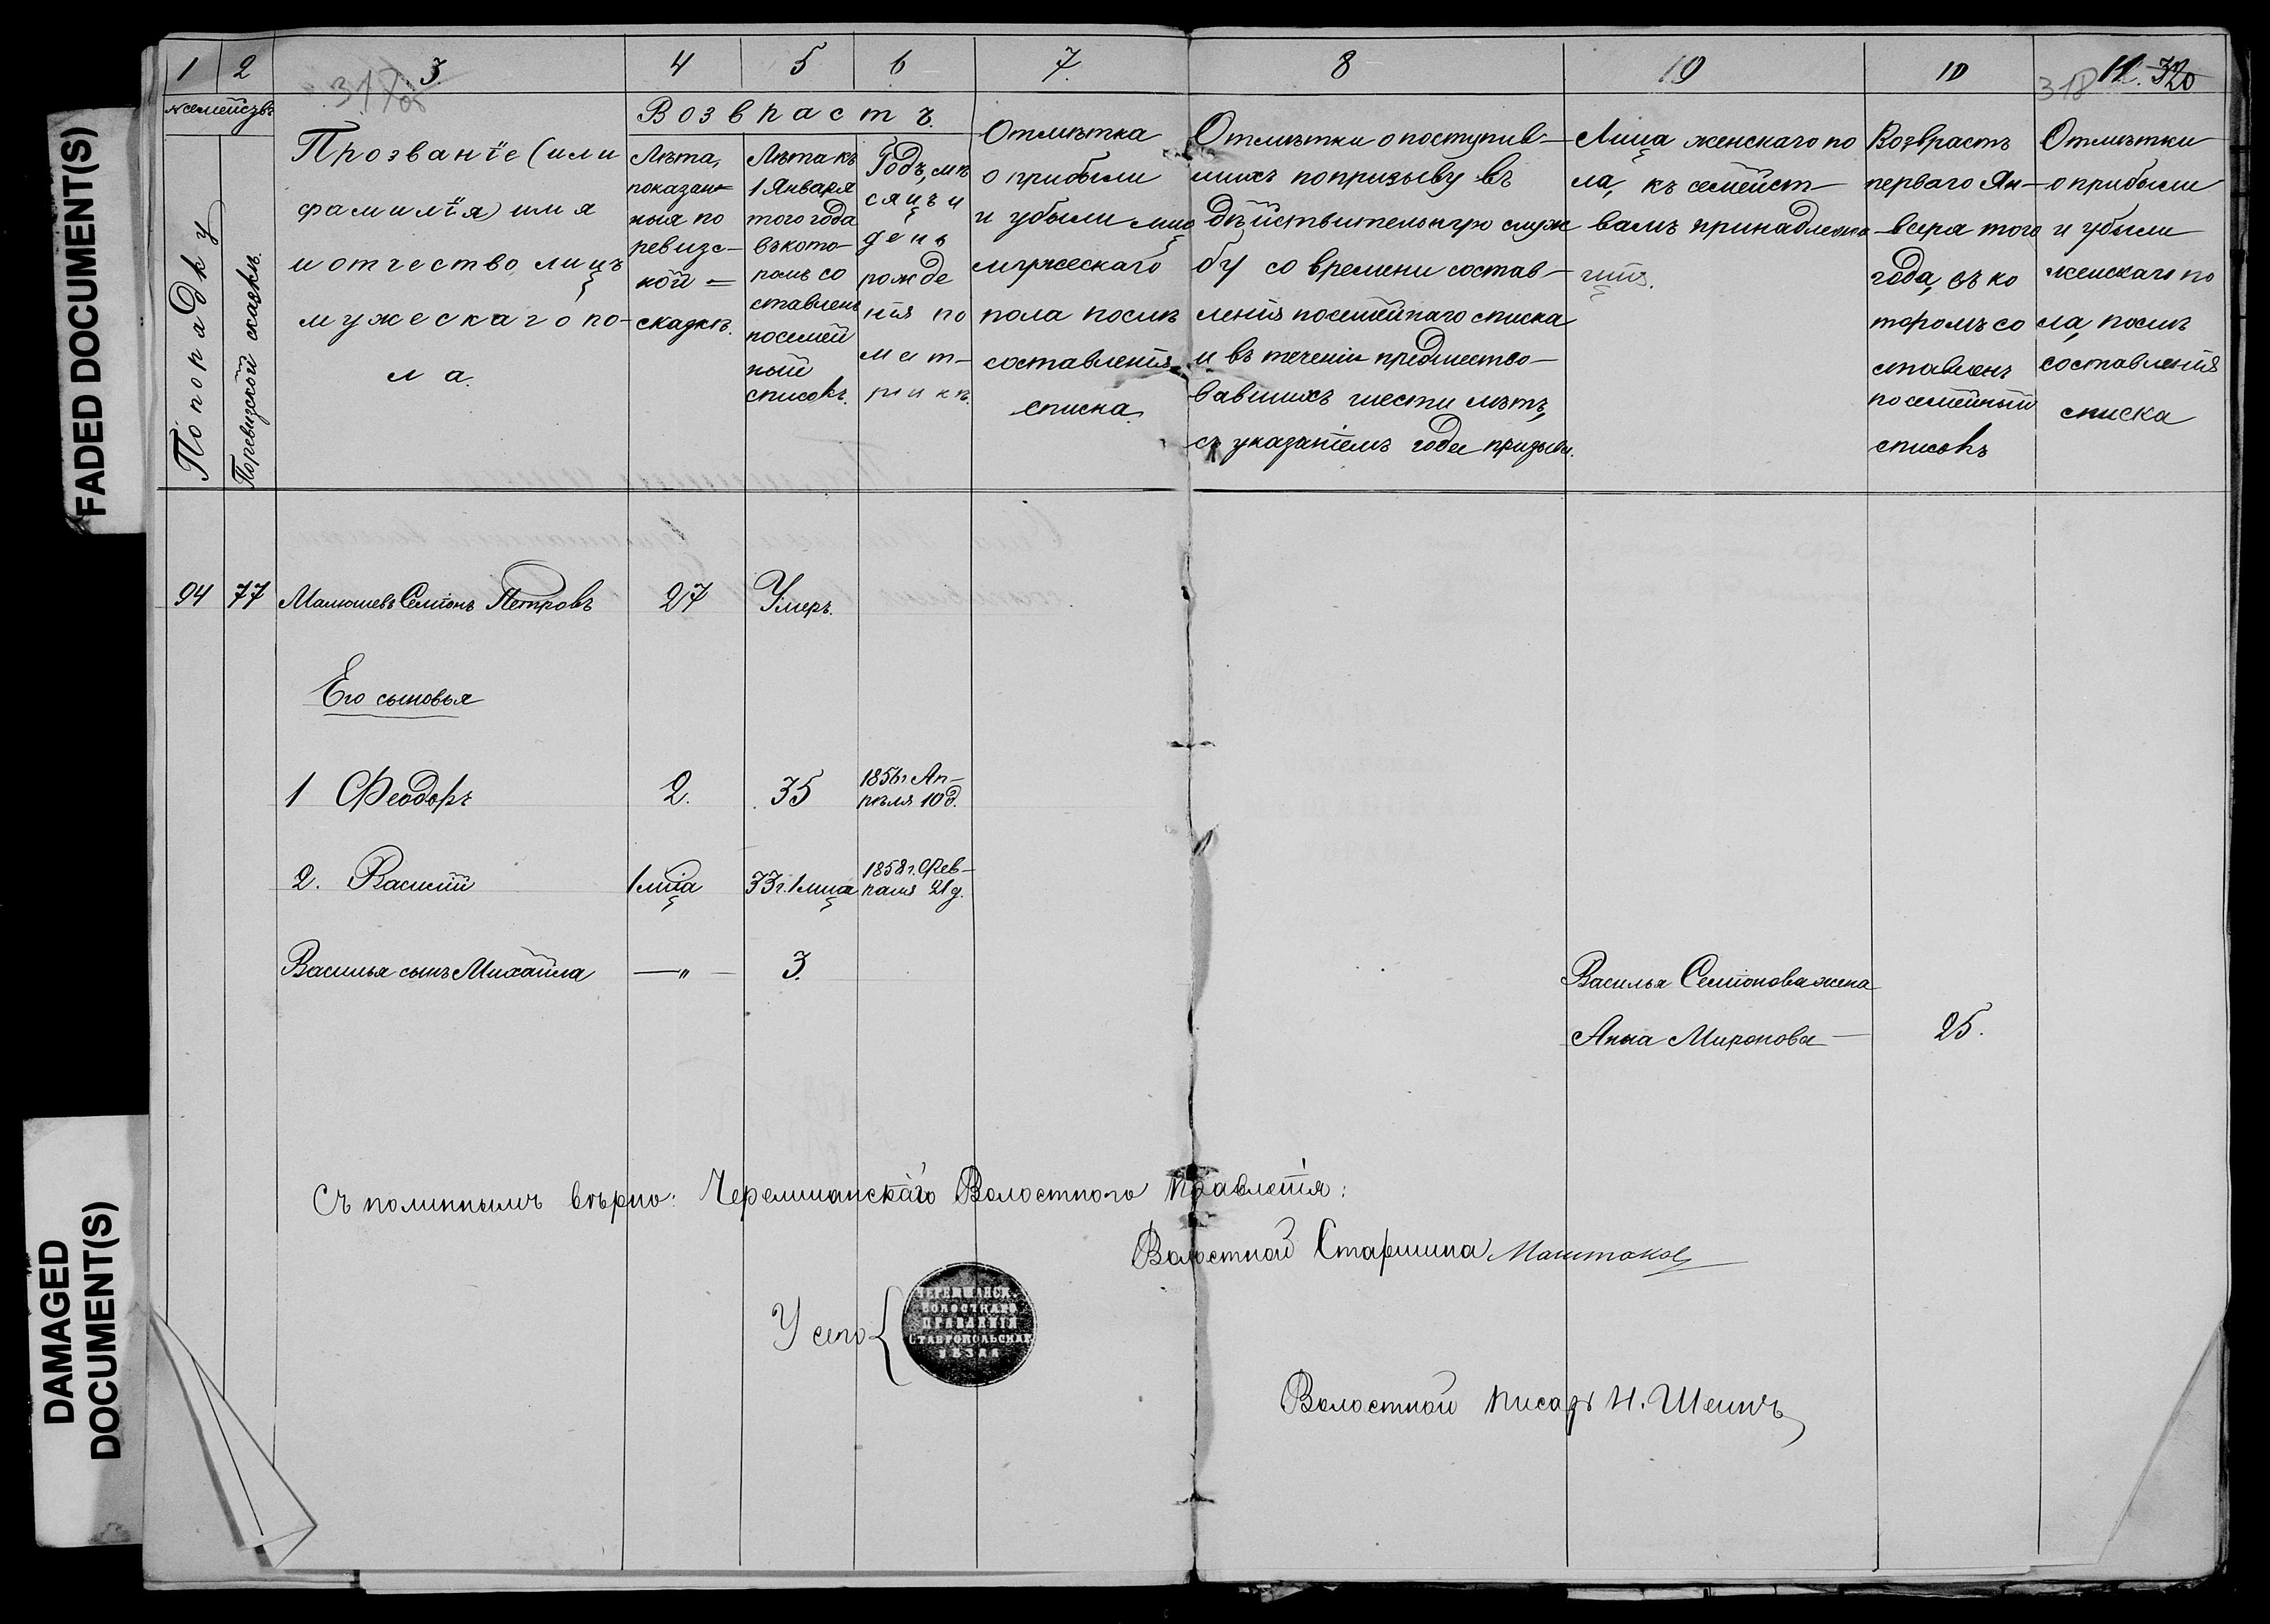 FADED DOCUMENT(S)
DAMAGED
DOCUMENT(S)
1 2 3. 4 5 6 7. 8 9 10 11. 320
317 об
318
№ семействъ
По порядку
По ревизской сказкѣ.
Прозваніе (или
фамилія) имя
и отчество лицъ
мужескаго по-
ла.
Возврастъ.
Лѣта,
показан-
ныя по
ревизс-
кой
сказкѣ.
Лѣта къ
1 Января
того года
въ кото-
ромъ со
ставленъ
посемей
ный
списокъ.
Годъ, мѣ
сяцъ и
день
рожде
нія по
мет-
рикѣ.
Отмѣтка
о прибыли
и убыли лиц
мужескаго
пола послѣ
составленія
списка.
Отмѣтки о поступив-
шихъ по призыву въ
дѣйствительную служ
бу со времени состав-
ленія посемейнаго списка
и въ теченіи предшество-
вавшихъ шести лѣтъ,
съ указаніемъ года призыва.
Лица женскаго по
ла, къ семейст-
вамъ принадлежа-
щія.
Возврастъ
перваго Ян-
варя того
года, въ ко
торомъ со
ставленъ
посемейный
списокъ
Отмѣтки
о прибыли
и убыли
женскаго по
ла, послѣ
составленія
списка
94 77 Малюшевъ Семіонъ Петровъ 27 Умеръ.
Его сыновья
1 Феодоръ 2. 35 1856 г. Ап-
рѣля 10 д.
2. Василій 1 м-ца 33 г. 1 м-ца 1858 г. Фев-
раля 21 д.
Василья сынъ Михайла —„— 3.
Василья Семіонова жена
Анна Миронова — 25.
Съ подлиннымъ вѣрно: Черемшанскаго Волостного Правленія:
Волостной Старшина Маштаковъ
У сего
ЧЕРЕМШАНСК.
ВОЛОСТНАГО
ПРАВЛЕНІЯ
СТАВРОПОЛЬСКАГ
УѢЗДА
Волостной Писарь Н. Шеинъ